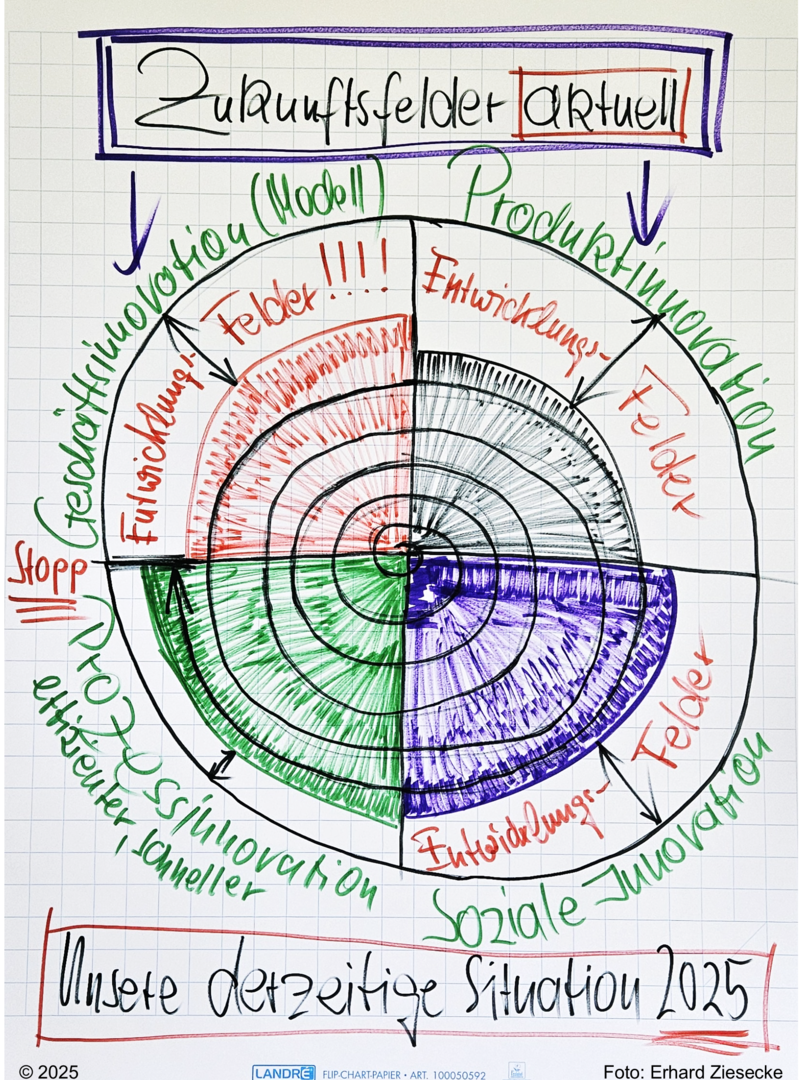 Zukunftsfelder aktuell
Geschäftsinnovation (Modell)
Produktinnovation
Entwicklungs-
Felder!!!!
Entwicklungs-
Felder
Stopp
Prozessinnovation
effizienter, schneller
Felder
Entwicklungs-
Soziale Innovation
Unsere derzeitige Situation 2025
© 2025
LANDRÉ FLIP-CHART-PAPIER • ART. 100050592
Foto: Erhard Ziesecke